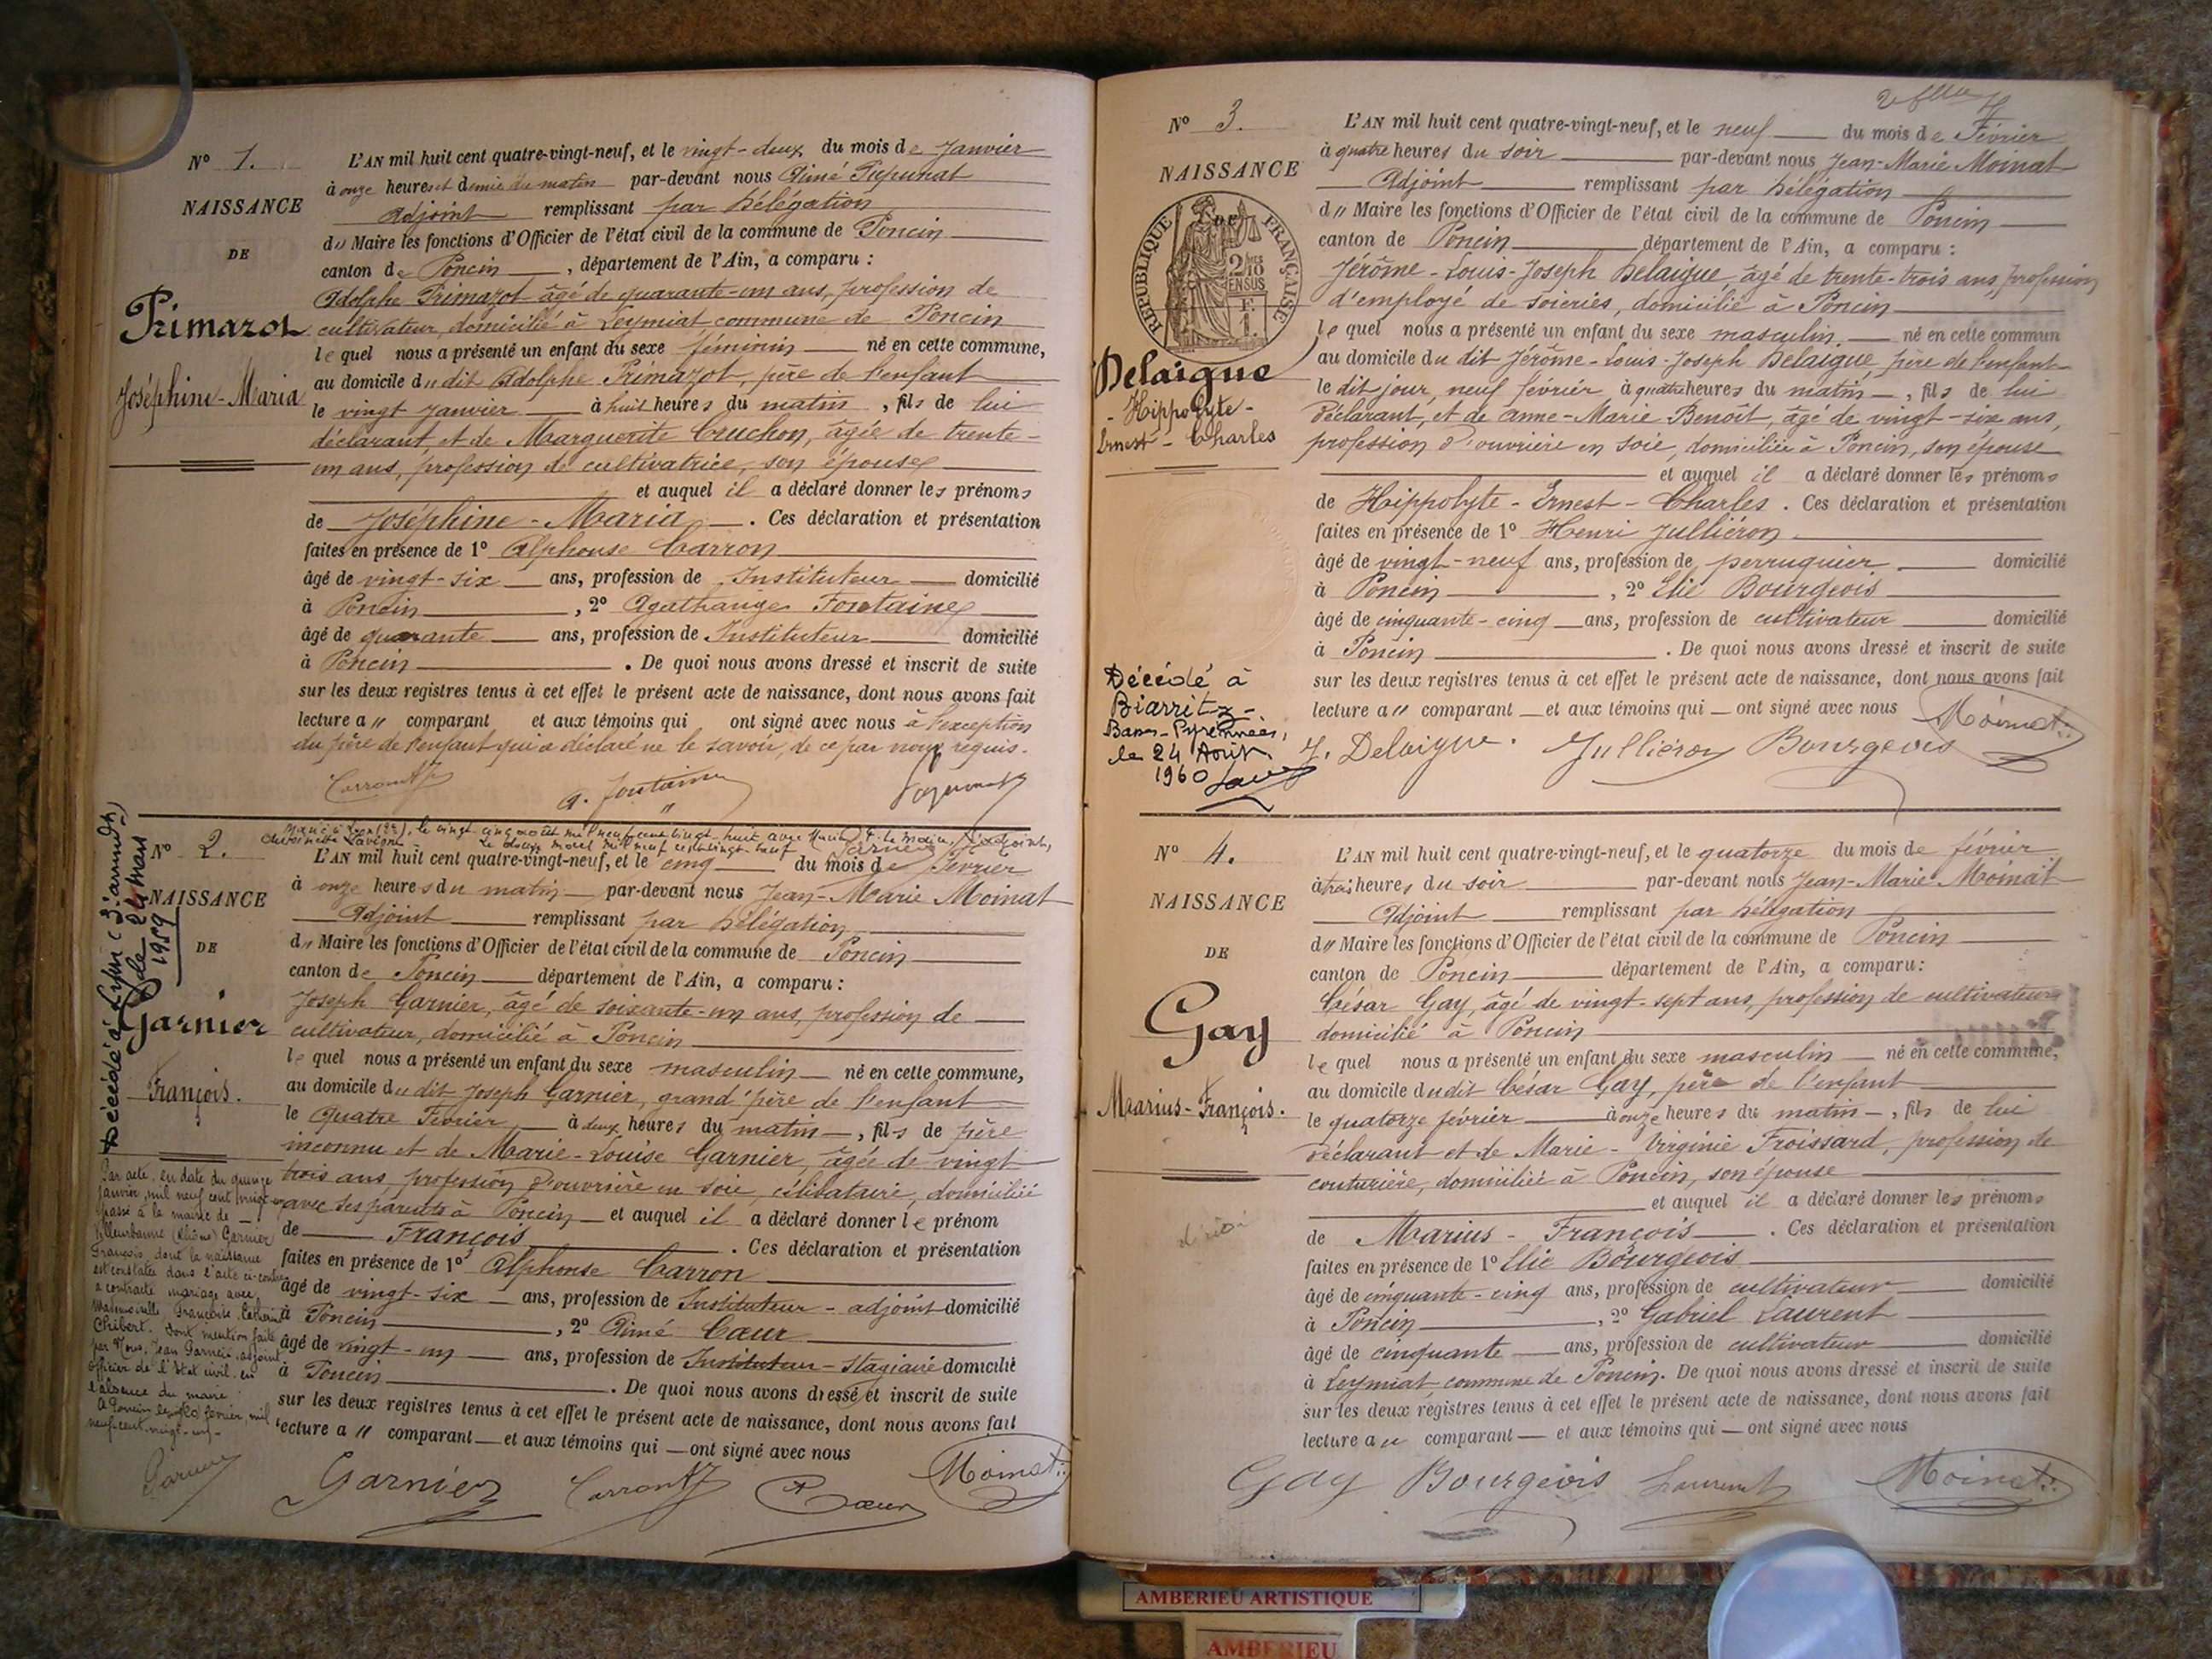 N° 1.
NAISSANCE
DE
Primazot
Joséphine-Maria
L'AN mil huit cent quatre-vingt-neuf, et le vingt-deux du mois de Janvier
à onze heures et demie du matin par-devant nous Aimé
Adjoint remplissant par délégation
du Maire les fonctions d'Officier de l'état civil de la commune de Poncin
canton de Poncin, département de l'Ain, a comparu :
Adolphe Primazot âgé de quarante-un ans, profession de
cultivateur, domicilié à Leymiat commune de Poncin
lequel nous a présenté un enfant du sexe féminin né en cette commune,
au domicile du dit Adolphe Primazot, père de l'enfant
le vingt janvier à huit heures du matin, fils de lui
déclarant et de Marguerite Cruchon, âgée de trente-
un ans, profession de cultivatrice, son épouse
et auquel il a déclaré donner les prénoms
de Joséphine-Maria. Ces déclaration et présentation
faites en présence de 1° Alphonse Carron
âgé de vingt-six ans, profession de Instituteur domicilié
à Poncin, 2° Agathange Fontaine
âgé de quarante ans, profession de Instituteur domicilié
à Poncin. De quoi nous avons dressé et inscrit de suite
sur les deux registres tenus à cet effet le présent acte de naissance, dont nous avons fait
lecture a " comparant et aux témoins qui ont signé avec nous à l'exception
du père de l'enfant qui a déclaré ne le savoir, de ce par nous requis.
Carron A. Fontaine
N° 2.
NAISSANCE
DE
Garnier
François.
Décédé à le 24 mars
1959
L'AN mil huit cent quatre-vingt-neuf, et le cinq du mois de Février
à onze heures du matin par-devant nous Jean-Marie Moinat
Adjoint remplissant par délégation
du Maire les fonctions d'Officier de l'état civil de la commune de Poncin
canton de Poncin département de l'Ain, a comparu :
Joseph Garnier, âgé de soixante-un ans, profession de
cultivateur, domicilié à Poncin
lequel nous a présenté un enfant du sexe masculin né en cette commune,
au domicile du dit Joseph Garnier, grand'père de l'enfant
le Quatre Février à deux heures du matin, fils de père
inconnu et de Marie-Louise Garnier, âgée de vingt
trois ans, profession d'ouvrière en soie, célibataire, domiciliée
avec ses parents à Poncin et auquel il a déclaré donner le prénom
de François. Ces déclaration et présentation
faites en présence de 1° Alphonse Carron
âgé de vingt-six ans, profession de Instituteur-adjoint domicilié
à Poncin, 2° Aimé Cœur
âgé de vingt-un ans, profession de Instituteur-stagiaire domicilié
à Poncin. De quoi nous avons dressé et inscrit de suite
sur les deux registres tenus à cet effet le présent acte de naissance, dont nous avons fait
lecture a " comparant et aux témoins qui ont signé avec nous
Par acte, en date du quinze
janvier, mil neuf cent vingt-un
passé à la mairie de
Villeurbanne (Rhône) Garnier
François, dont la naissance
est constatée dans l'acte ci-contre
a contracté mariage avec
Mademoiselle Françoise
Chibert. Dont mention faite
par Nous, Jean Garnier, adjoint
officier de l'état civil, en
l'absence du maire.
A Poncin février, mil
neuf-cent-vingt-un
Garnier Garnier Carron A. Cœur Moinat
N° 3.
NAISSANCE
DE
RÉPUBLIQUE FRANÇAISE
2/10 EN SUS
F.
1.
Delaigue
-Hippolyte-
Ernest-Charles
L'AN mil huit cent quatre-vingt-neuf, et le neuf du mois de Février
à quatre heures du soir par-devant nous Jean-Marie Moinat
Adjoint remplissant par délégation
d" Maire les fonctions d'Officier de l'état civil de la commune de Poncin
canton de Poncin département de l'Ain, a comparu :
Jérôme-Louis-Joseph Delaigue, âgé de trente-trois ans, profession
d'employé de soieries, domicilié à Poncin
lequel nous a présenté un enfant du sexe masculin. né en cette commun
au domicile du dit Jérôme-Louis-Joseph Delaigue, père de l'enfant
le dit jour, neuf février à quatre heures du matin, fils de lui
déclarant, et de Anne-Marie Benoît, âgé de vingt-six ans,
profession d'ouvrière en soie, domiciliée à Poncin, son épouse
et auquel il a déclaré donner les prénoms
de Hippolyte-Ernest-Charles. Ces déclaration et présentation
faites en présence de 1° Henri Julliéron
âgé de vingt-neuf ans, profession de perruquier domicilié
à Poncin, 2° Elie Bourgeois
âgé de cinquante-cinq ans, profession de cultivateur domicilié
à Poncin. De quoi nous avons dressé et inscrit de suite
sur les deux registres tenus à cet effet le présent acte de naissance, dont nous avons fait
lecture a " comparant et aux témoins qui ont signé avec nous Moinat
J. Delaigue. Julliéron Bourgeois
Décédé à
Biarritz-
Basses-Pyrénnées,
le 24 Août
1960
N° 4.
NAISSANCE
DE
Gay
Marius-François.
L'AN mil huit cent quatre-vingt-neuf, et le quatorze du mois de février
à trois heures du soir par-devant nous Jean-Marie Moinat
Adjoint remplissant par délégation
d" Maire les fonctions d'Officier de l'état civil de la commune de Poncin
canton de Poncin département de l'Ain, a comparu:
César Gay, âgé de vingt-sept ans, profession de cultivateur
domicilié à Poncin
lequel nous a présenté un enfant du sexe masculin né en cette commune,
au domicile du dit César Gay, père de l'enfant
le quatorze février à onze heures du matin, fils de lui
déclarant et de Marie-Virginie Froissard, profession de
couturière, domiciliée à Poncin, son épouse
et auquel il a déclaré donner les prénoms
de Marius-François. Ces déclaration et présentation
faites en présence de 1° Elie Bourgeois
âgé de cinquante-cinq ans, profession de cultivateur domicilié
à Poncin, 2° Gabriel Laurent
âgé de cinquante ans, profession de cultivateur domicilié
à Leymiat commune de Poncin. De quoi nous avons dressé et inscrit de suite
sur les deux registres tenus à cet effet le présent acte de naissance, dont nous avons fait
lecture a u comparant et aux témoins qui ont signé avec nous
Gay Bourgeois Laurent Moinat
AMBERIEU ARTISTIQUE
AMBERIEU